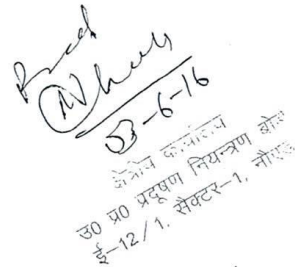 03-6-16
क्षेत्रीय कार्यालय
उ0 प्र0 प्रदूषण नियन्त्रण बोर्ड
ई-12/1, सैक्टर-1, नौएडा